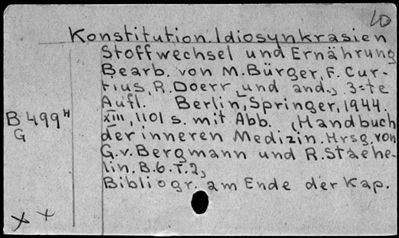 LD
Konstitution. Idiosynkrasien
Stoffwechsel und Ernährung
Bearb. von M. Bürger, F. Cur-
tius, R. Doerr, und and., 3=te
Aufl. Berlin, Springer, 1944.
B 499 H
XIII, 1101 s. mit Abb. (Handbuch
G
der inneren Medizin. Hrsg. von
G. v. Bergmann und R. Staehe-
lin. B. 6. T. 2,
Bibliogr. am Ende der Kap.
x x